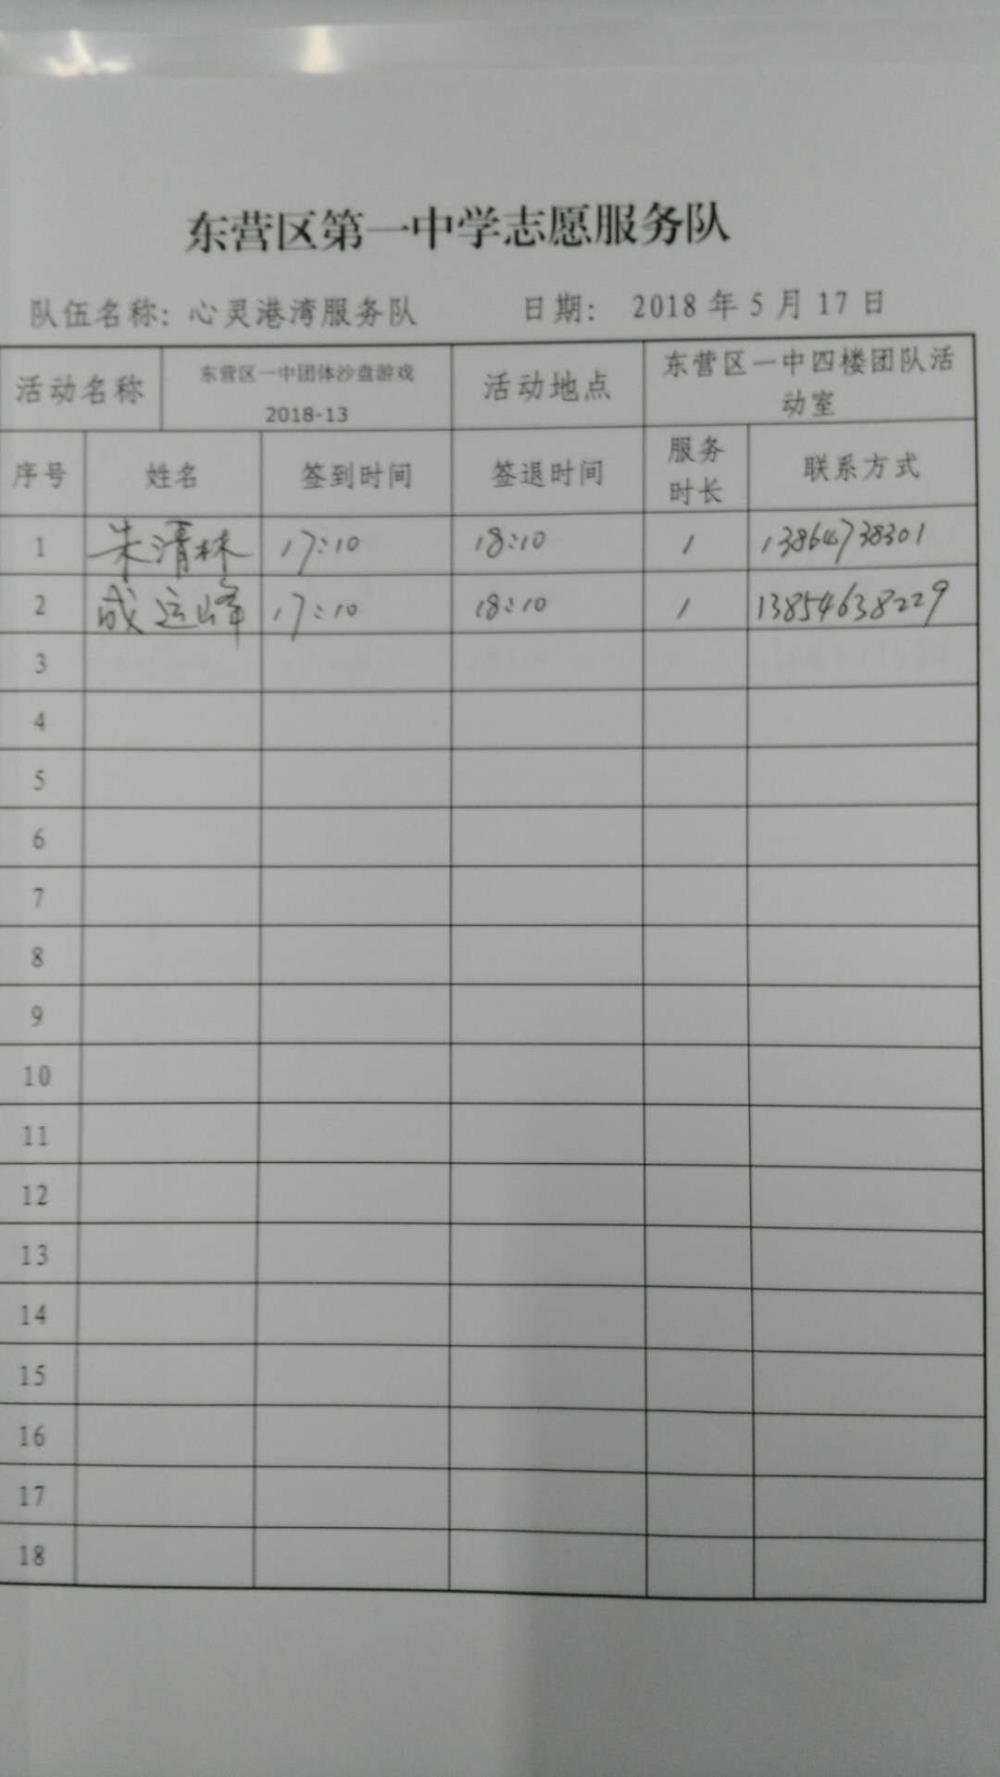 东营区第一中学志愿服务队
队伍名称：心灵港湾服务队 日期： 2018 年 5 月 17 日
活动名称 东营区一中团体沙盘游戏 2018-13 活动地点 东营区一中四楼团队活动室
序号 姓名 签到时间 签退时间 服务时长 联系方式
1 朱清林 17:10 18:10 1 13864738301
2 成运峰 17:10 18:10 1 13854638229
3
4
5
6
7
8
9
10
11
12
13
14
15
16
17
18